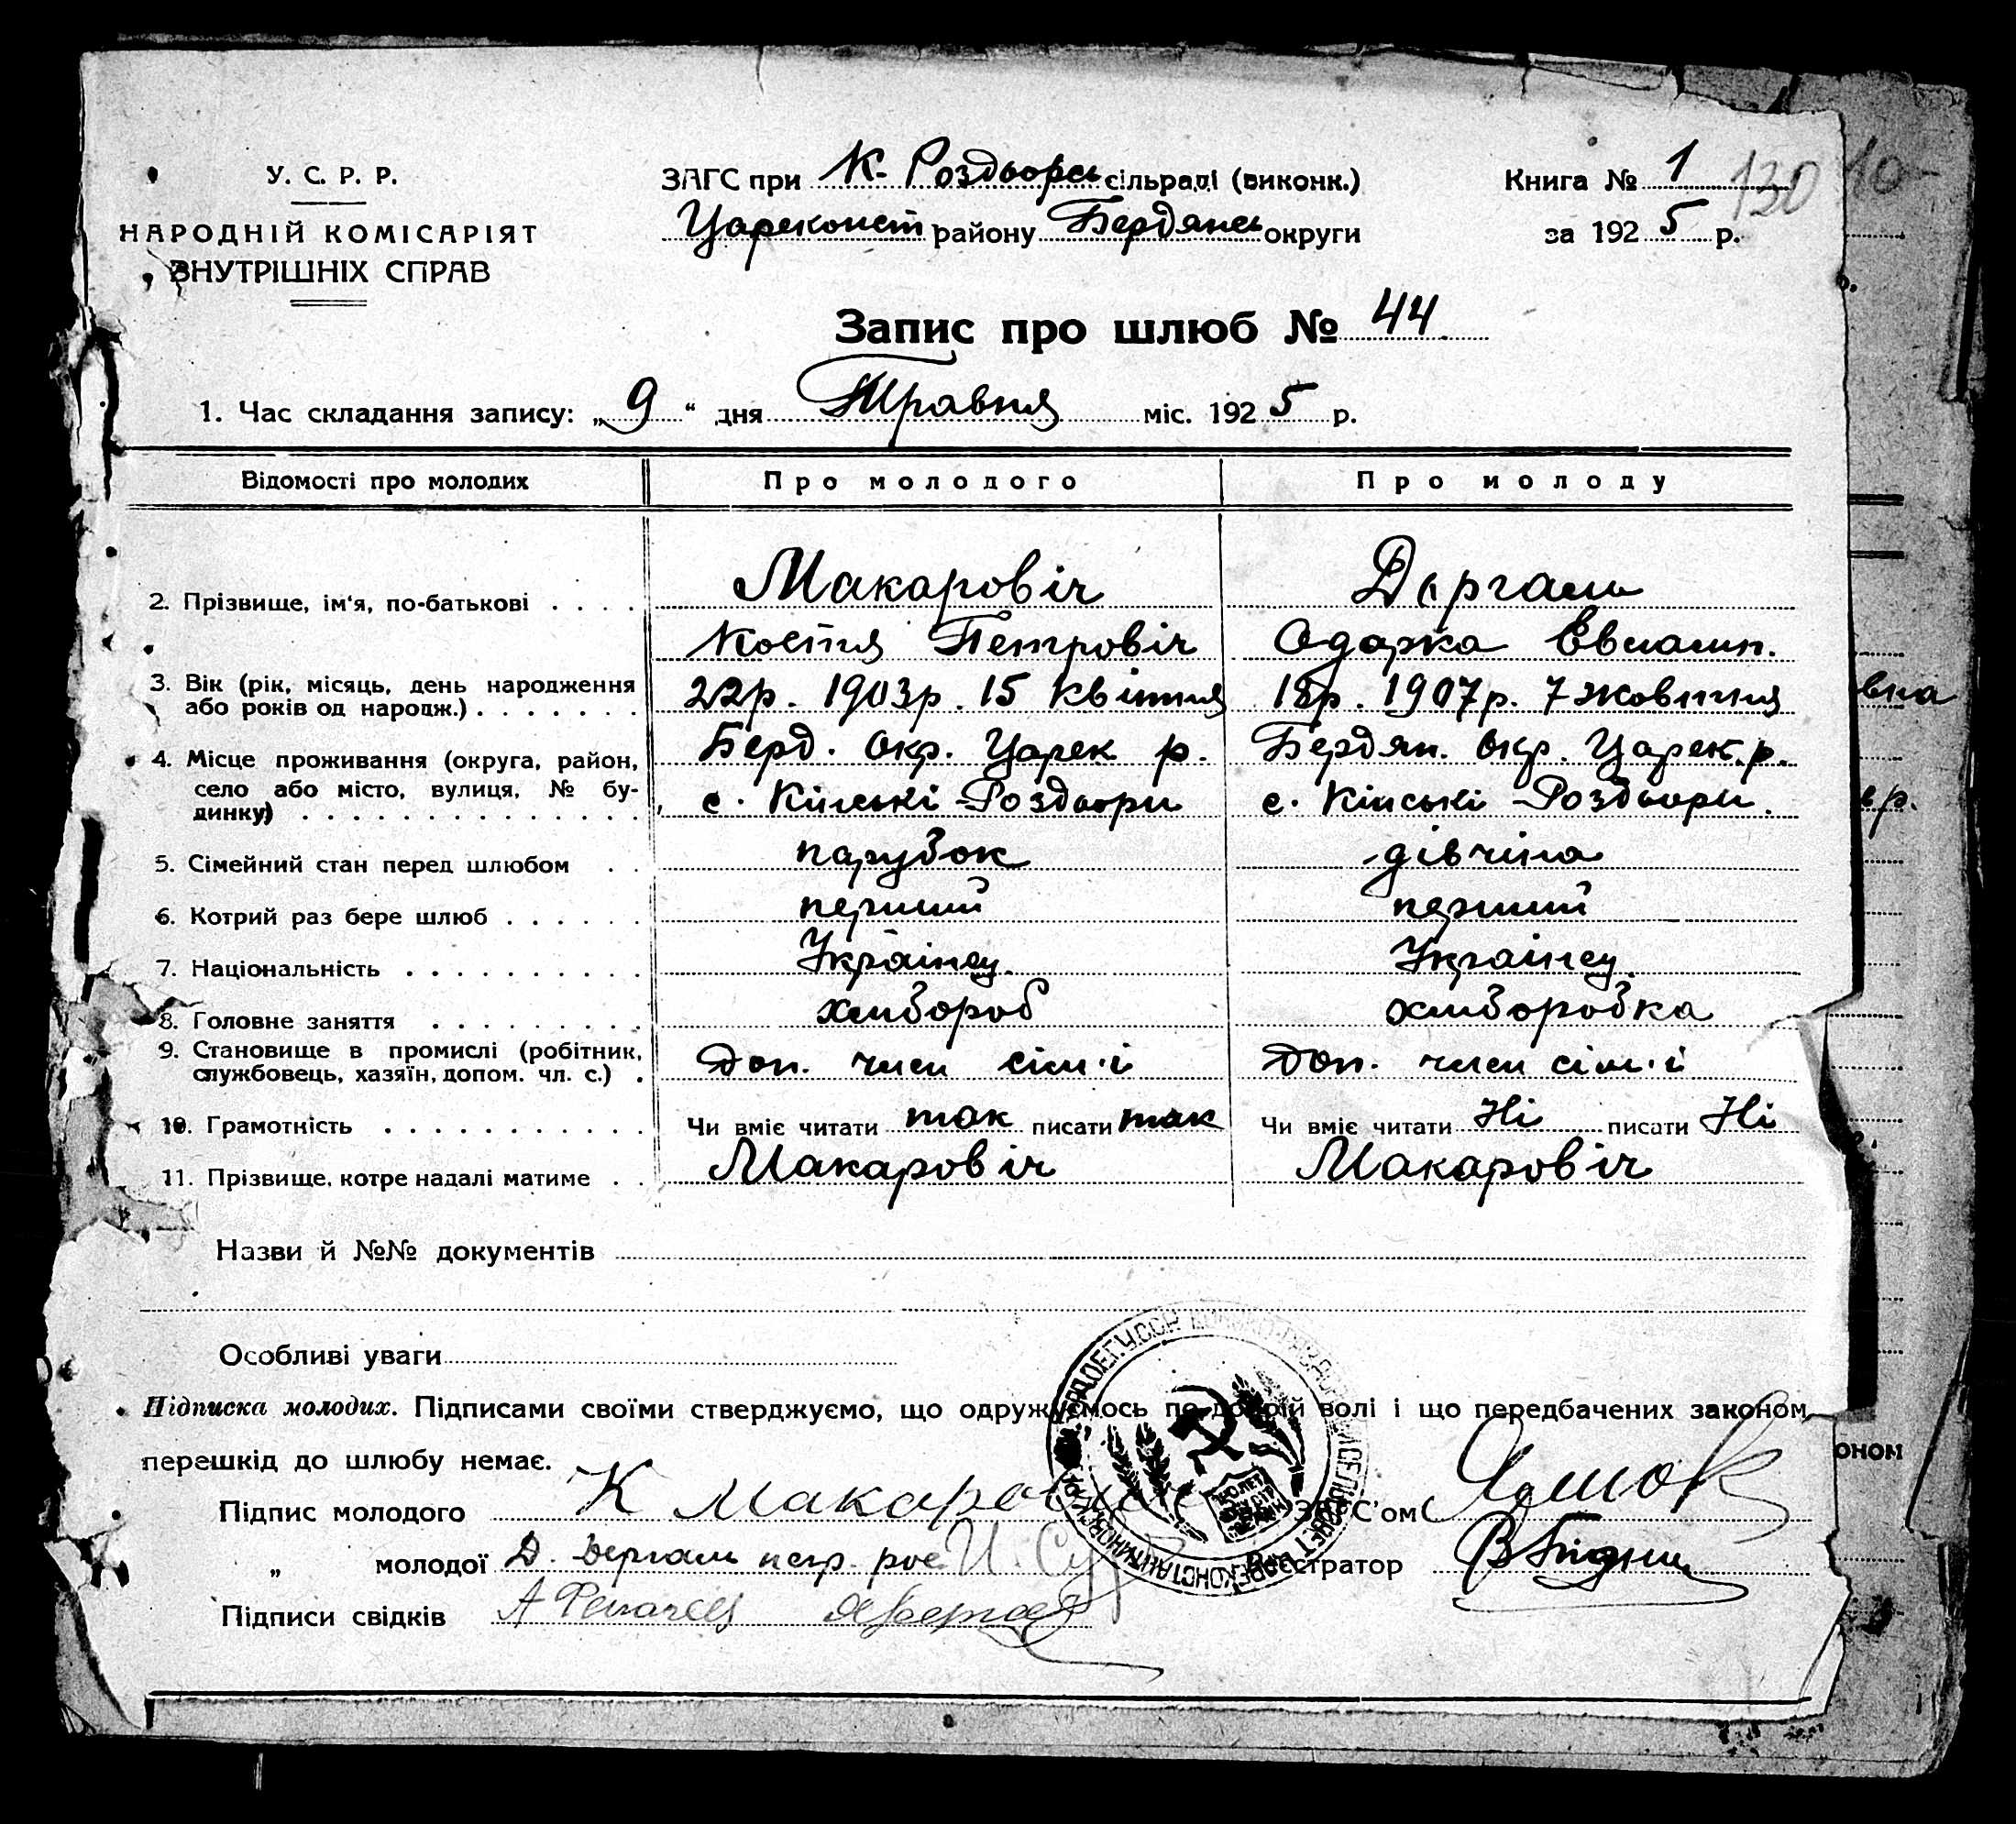 У. С. Р. Р.
НАРОДНІЙ КОМІСАРІЯТ
ВНУТРІШНІХ СПРАВ
ЗАГС при К. Роздорсь сільраді (виконк.)
Цареконст району Бердянсь округи
Книга № 1 130
за 1925 р.
Запис про шлюб № 44
1. Час складання запису: „9“ дня Травня міс. 1925 р.
Відомості про молодих Про молодого Про молоду
2. Прізвище, ім'я, по-батькові . . . . Макаровіч Дергаль
Костя Петровіч Одарка Евламп.
3. Вік (рік, місяць, день народження або років од народж.) . . . . . . . 22р. 1903р. 15 Квітня 18р. 1907р. 7 жовтня
4. Місце проживання (округа, район, Берд. Окр. Царек р. Бердян. Окр. Царек. р.
село або місто, вулиця, № будинку) . . . . . . . . . . . . . . с. Кінські-Роздори с. Кінські-Роздори.
5. Сімейний стан перед шлюбом . . парубок дівчина
6. Котрий раз бере шлюб . . . . . . перший перший
7. Національність . . . . . . . . . . Українец. Украінец.
8. Головне заняття . . . . . . . . . хлибороб хлиборобка
9. Становище в промислі (робітник, службовець, хазяїн, допом. чл. с.) . доп. член сім'і доп. член сім'і
10. Грамотність . . . . . . . . . . . Чи вміє читати так писати так Чи вміє читати Ні писати Ні
11. Прізвище, котре надалі матиме . . Макаровіч Макаровіч
Назви й №№ документів
Особливі уваги
Підписка молодих. Підписами своїми стверджуємо, що одружуємось по добрій волі і що передбачених законом
перешкід до шлюбу немає.
Підпис молодого К Макарович ЗАГС'ом
„ молодої Д. Дергаль негр. рос. Реєстратор
Підписи свідків